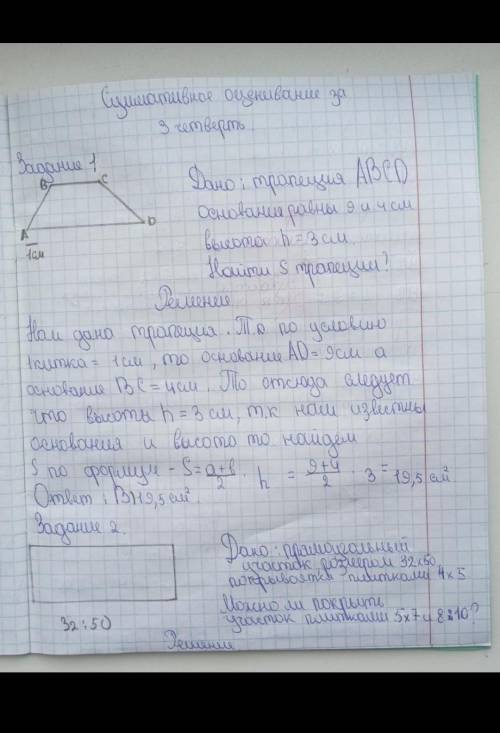 Сумативное оценивание за
3 четверть.
Задание 1
B C
A D
1см
Дано: трапеция ABCD
основания равны 9 и 4 см
высота h = 3 см.
Найти S трапеции?
Решение
Нам дана трапеция. Т.к по условию
1 клетка = 1 см, то основание AD = 9см а
основание BC = 4см. То отсюда следует
что высоты h = 3 см, т.к нам известны
основания и высота то найдем
S по формул - S = a+b/2 · h = 9+4/2 · 3 = 19,5 см²
Ответ: B) 19,5 см².
Задание 2.
Дано: прямоугольный
участок размером 32x50
покрывается плитками 4x5
Можно ли покрыть
участок плитками 5x7 и 8x10?
32:50
Решение